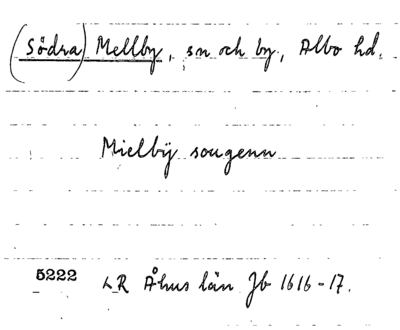 (Södra) Mellby, sn och by, Albo hd.
Mielbÿ sougenn
5222 LR Åhus län Jb 1616-17.